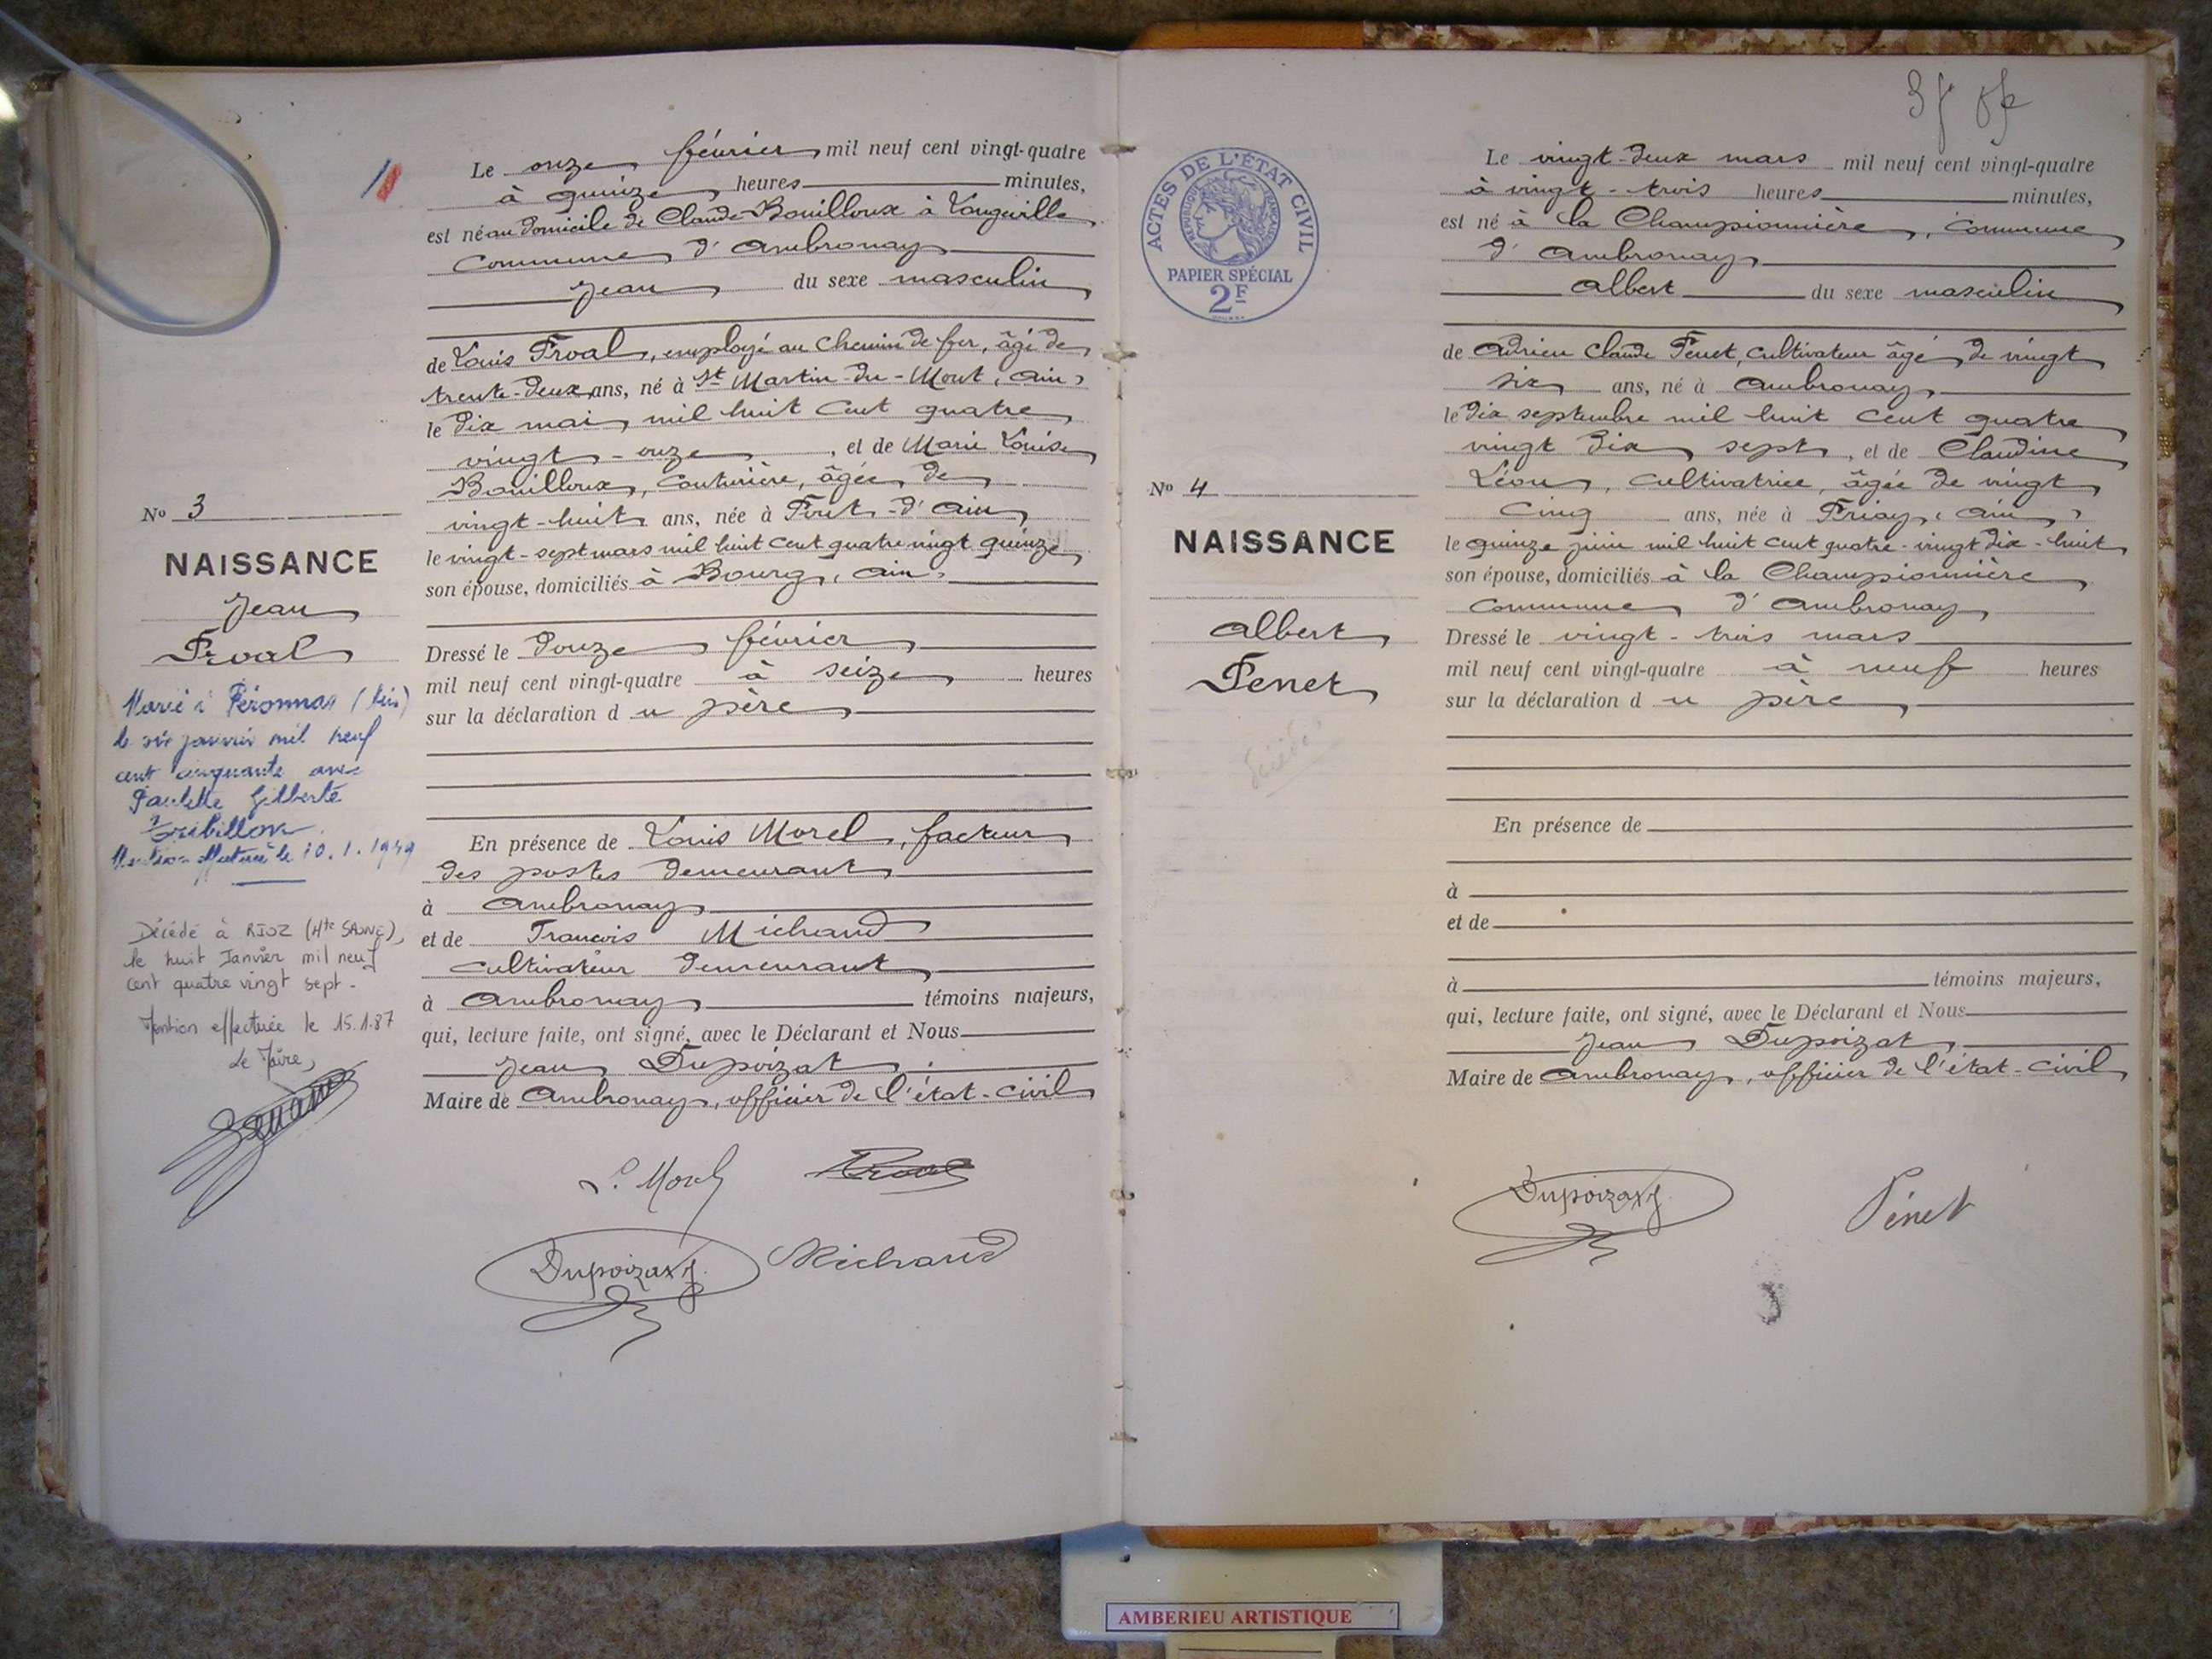 Le onze février mil neuf cent vingt-quatre
à quinze heures minutes,
est né au domicile de Claude Bouilloux à Longeville
commune d'Ambronay
Jean du sexe masculin
de Louis Proal, employé au chemin de fer, âgé de
trente-deux ans, né à St Martin-du-Mont, Ain,
le dix mai mil huit cent quatre
vingt-onze, et de Marie Louise
Bouilloux, couturière, âgée de
vingt-huit ans, née à Pont-d'Ain
le vingt-sept mars mil huit cent quatre vingt quinze
son épouse, domiciliés à Bourg, Ain,
Dressé le douze février
mil neuf cent vingt-quatre à seize heures
sur la déclaration du père
En présence de Louis Morel, facteur
des postes demeurant
à Ambronay
et de François Michaud
cultivateur demeurant
à Ambronay témoins majeurs,
qui, lecture faite, ont signé, avec le Déclarant et Nous
Jean Dupoizat
Maire de Ambronay, officier de l'état-civil
L. Morel Proal
Dupoizat J. Michaud
No 3
NAISSANCE
Jean
Proal
Marié à Péronnas (Ain)
le six janvier mil neuf
cent cinquante avec
Paulette Gilberte
Mention effectuée le 10.1.1949
Décédé à RIOZ (Hte SAONE),
le huit Janvier mil neuf
cent quatre vingt sept.
Mention effectuée le 15.1.87
Le Maire,
ACTES DE L'ÉTAT CIVIL
PAPIER SPÉCIAL
2F
No 4
NAISSANCE
Albert
Penet
Le vingt-deux mars mil neuf cent vingt-quatre
à vingt-trois heures minutes,
est né à la Championnière, commune
d'Ambronay
Albert du sexe masculin
de Adrien Claude Penet, cultivateur âgé de vingt
six ans, né à Ambronay
le dix septembre mil huit cent quatre
vingt dix sept, et de Claudine
Léon, cultivatrice, âgée de vingt
cinq ans, née à Priay, Ain,
le quinze juin mil huit cent quatre-vingt dix-huit
son épouse, domiciliés à la Championnière
commune d'Ambronay
Dressé le vingt-trois mars
mil neuf cent vingt-quatre à neuf heures
sur la déclaration du père
En présence de
à
et de
à témoins majeurs,
qui, lecture faite, ont signé, avec le Déclarant et Nous
Jean Dupoizat
Maire de Ambronay, officier de l'état-civil
Dupoizat J. Pénet
AMBERIEU ARTISTIQUE